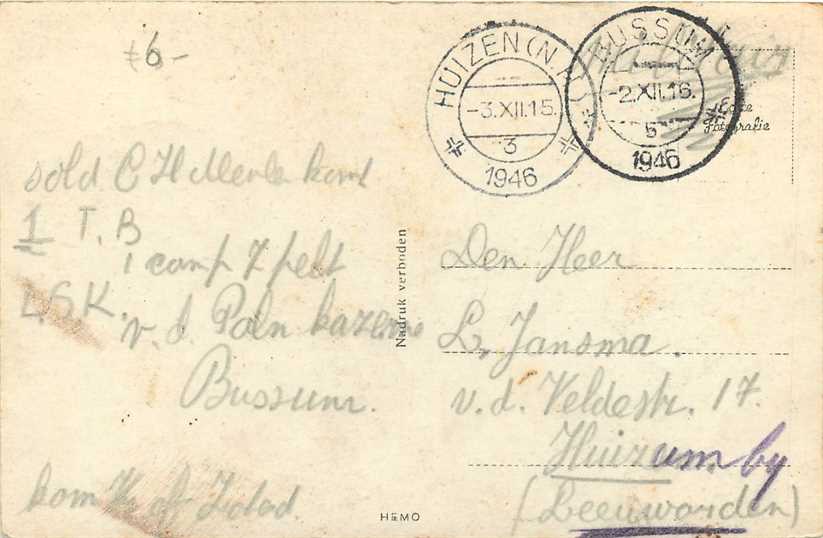 6-
HUIZEN (N.H.)
-3.XII.15.
3
1946
BUSSUM
-2.XII.16.
5
1946
Echte
Fotografie
sold C H
1 T. B
1 comp 7 pelt
L.S.K.
v. d. Paln kazerne
Bussum.
Nadruk verboden
Den Heer
L. Jansma.
v. d. Veldestr. 17
Huizum by
(Leeuwarden)
HEMO